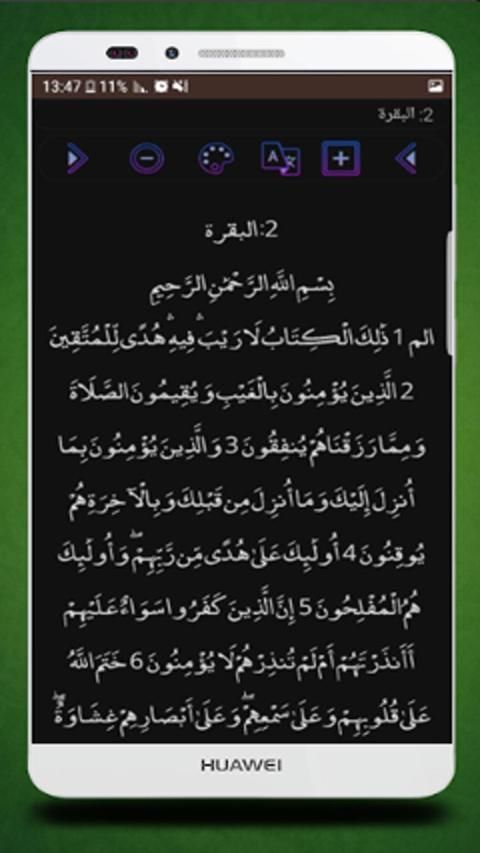 13:47 11%
2: البقرة
2:البقرة
بِسْمِ اللَّهِ الرَّحْمَٰنِ الرَّحِيمِ
الم 1 ذَٰلِكَ الْكِتَابُ لَا رَيْبَ ۛ فِيهِ ۛ هُدًى لِّلْمُتَّقِينَ
2 الَّذِينَ يُؤْمِنُونَ بِالْغَيْبِ وَيُقِيمُونَ الصَّلَاةَ
وَمِمَّا رَزَقْنَاهُمْ يُنفِقُونَ 3 وَالَّذِينَ يُؤْمِنُونَ بِمَا
أُنزِلَ إِلَيْكَ وَمَا أُنزِلَ مِن قَبْلِكَ وَبِالْآخِرَةِ هُمْ
يُوقِنُونَ 4 أُولَٰئِكَ عَلَىٰ هُدًى مِّن رَّبِّهِمْ ۖ وَأُولَٰئِكَ
هُمُ الْمُفْلِحُونَ 5 إِنَّ الَّذِينَ كَفَرُوا سَوَاءٌ عَلَيْهِمْ
أَأَنذَرْتَهُمْ أَمْ لَمْ تُنذِرْهُمْ لَا يُؤْمِنُونَ 6 خَتَمَ اللَّهُ
عَلَىٰ قُلُوبِهِمْ وَعَلَىٰ سَمْعِهِمْ ۖ وَعَلَىٰ أَبْصَارِهِمْ غِشَاوَةٌ ۖ
HUAWEI